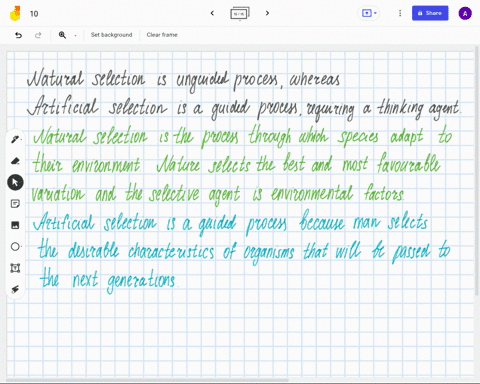 10
Share
A
Set background
Clear frame
Natural selection is unguided process, whereas
Artificial selection is a guided process, requring a thinking agent
Natural selection is the process through which species adapt to
their environment Nature selects the best and most favourable
variation and the selective agent is environmental factors
Artificial selection is a guided process because man selects
the desirable characteristics of organisms that will be passed to
the next generations